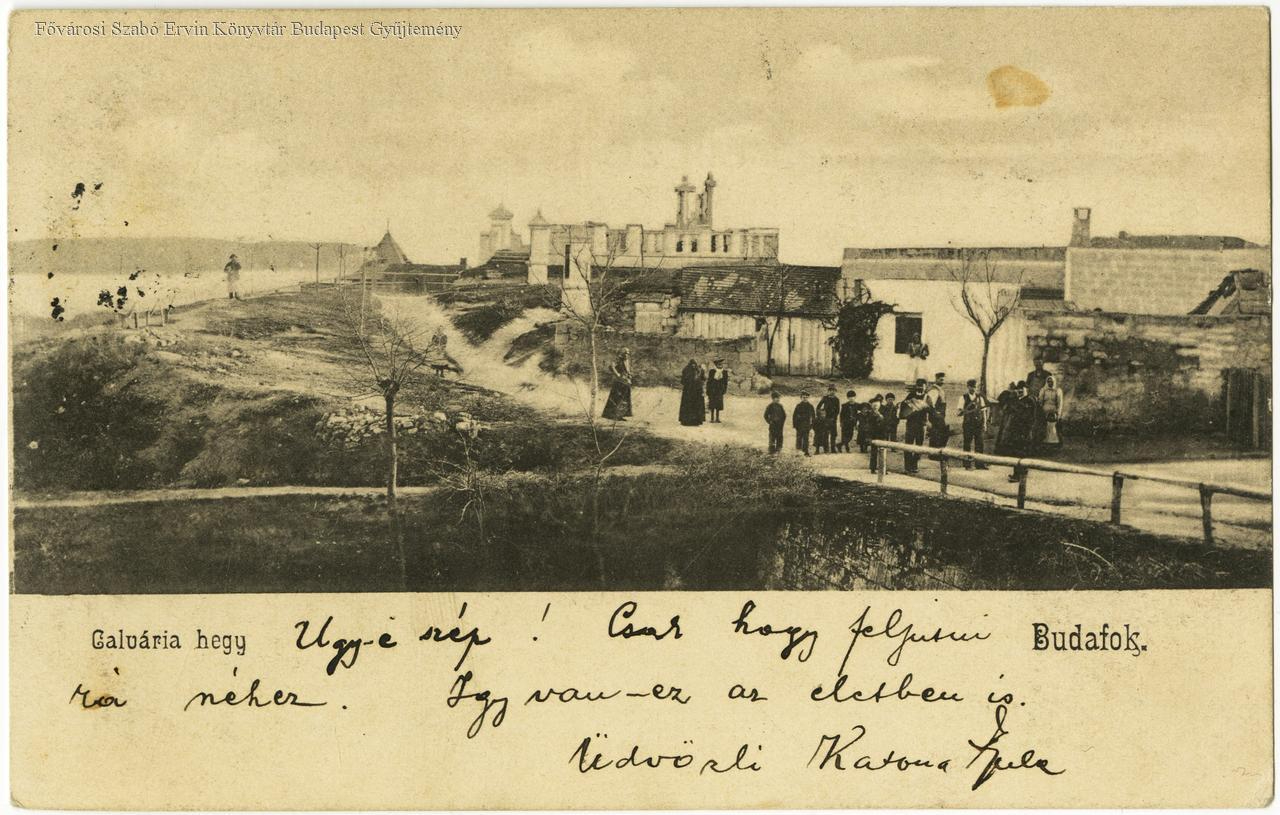 Fővárosi Szabó Ervin Könyvtár Budapest Gyűjtemény
Calvária hegy Ugy-e szép ! Csak hogy feljutni Budafok.
rá nehéz. Igy van-ez az életben is.
Üdvözli Katona